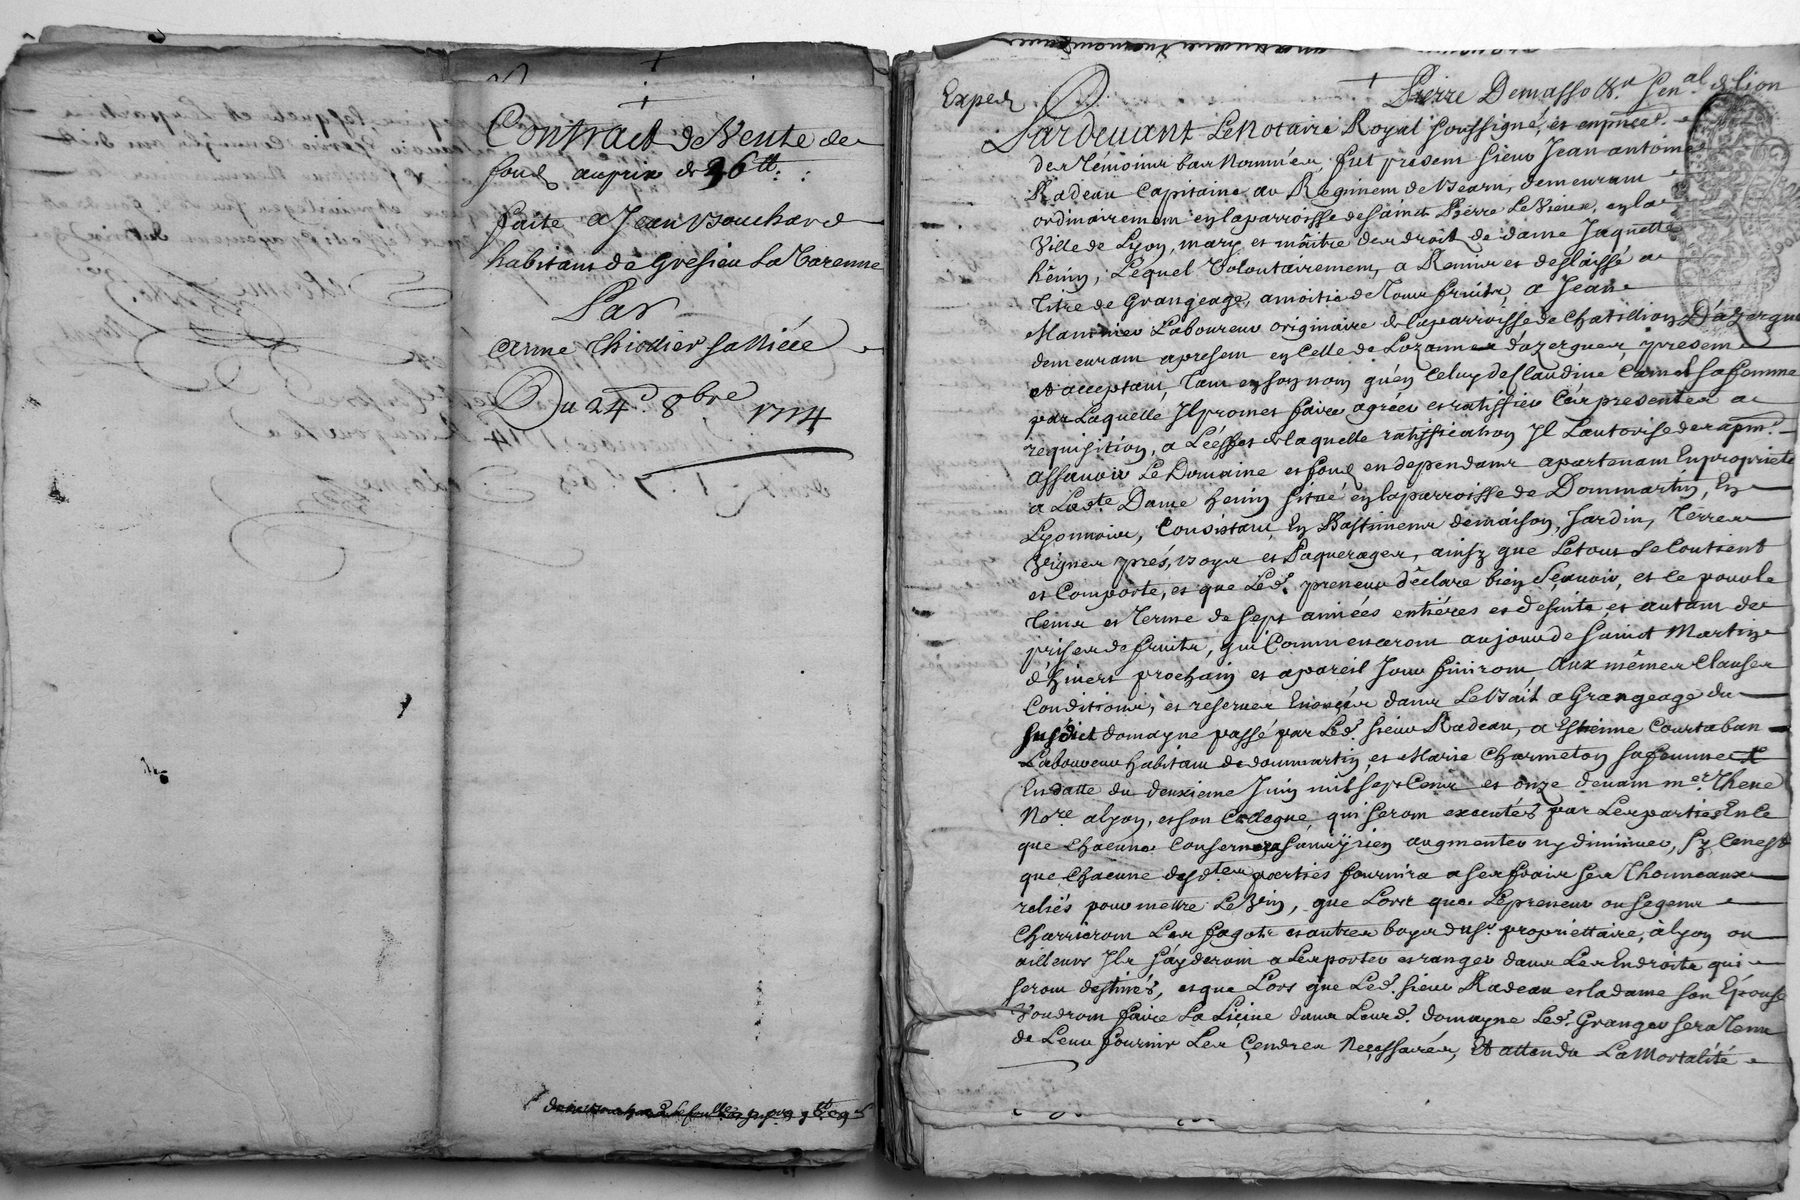 Contract de Vente de
fond au prix de 96tt.
faite a Jean Bouchard
habitant de Gresieu La Varenne
Par
Anne Thiollier sa Niéce
Du 24e 8bre 1714
Exped
Pierre Demasso Sen.al de Lion
Pardevant Le Notaire Royal soussigné, et en pnce
des témoins bas nommés, fut présent sieur Jean antoine
Radeau Capitaine au Regiment de Bearn, demeurant
ordinairement en la parroisse de saint Pierre Le Vieux, en la
Ville de Lyon, mary et maître des droits de dame Jaquette
hénin, Lequel Volontairement, a Remis et deslaissé a
titre de Grangeage, a moitié de Tous fruits, a Jean
Laboureur originaire de la parroisse de Chatillion D'azergue
demeurant a present en Celle de Lozanne dazergues, present
et acceptant, tant en son nom qu'en Celuy de Claudine Carret sa femme
par Laquelle Il promet faire agréer et ratiffier Ces presentes a
requisition, a L'éffet de laquelle ratiffication Il L'autorise des a pnt.
assavoir Le Domaine et fond en dependans apartenant En proprieté
a Lad.te Dame henin situé en la parroisse de Dommartin, En
Lyonnois, Consistant En Bastiments de maison, Jardin, Terres
Vignes, prés, bois et Paquerages, ainsy que Le tout se Contient
et Comporte, et que Led. preneur déclare bien sçavoir, et ce pour le
tems et terme de sept années entiéres et desuite et autant de
prises de fruits, qui Commenceront au jour de saint Martin
d'hivers prochain et a pareil Jour finiront, aux mêmes Clauses
Conditions, et reserves Enoncées dans Le Bail a Grangeage du
susdict domayne passé par Led. sieur Radeau, a Estienne Courtaban
Laboureur habitant de dommartin, et Marie Charmeton sa femme
En datte du deuxieme Juin mil sept Cens et onze devant me. Thene
No.re a lyon, et son Collegue, qui seront executés par Les parties En ce
que Chacune Consernera sans y rien augmenter ny diminuer, sy Cenest
que Chacune desd.tes parties fournira a ses frais ses Thonneaux
reliés pour mettre Le Vin, que Lors que Le preneur ou ses gens
Charrieront Les fagots et autres bois dud.sr propriettaire, a lyon ou
ailleurs Ils s'ayderont a Les porter et ranger dans Les Endroits qui
seront destinés, et que Lors que Led. sieur Radeau et la dame son Epouse
Voudront faire La Licive dans Leurd. domayne Led. Granger sera Tenu
de Leur fournir Les Cendres Necessaires, Et attendu La Mortalité